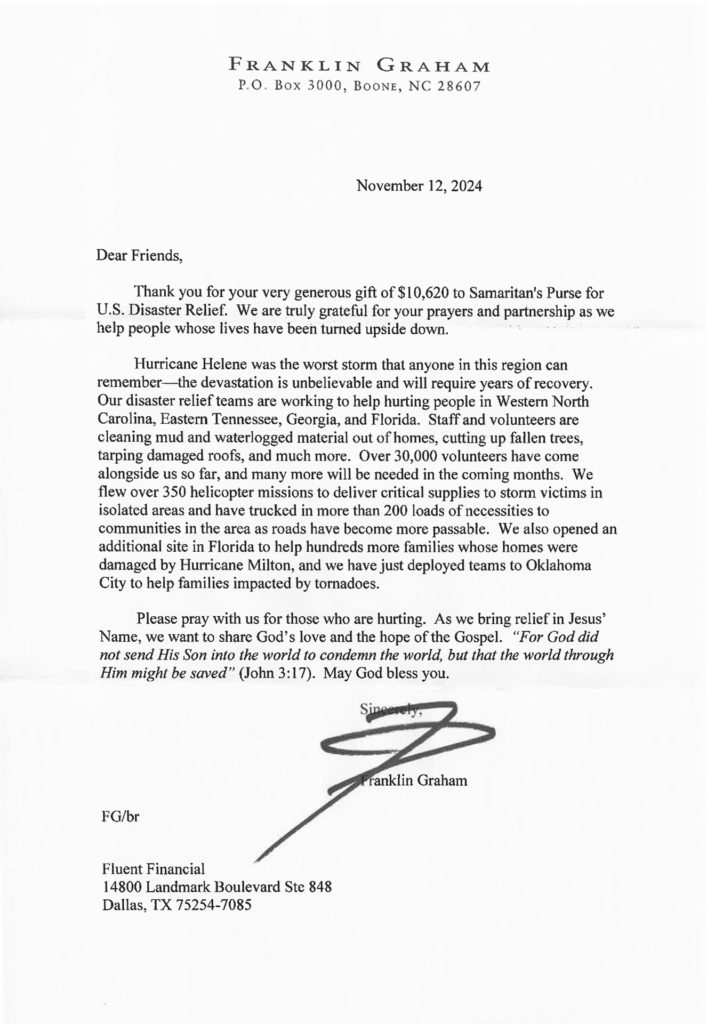 FRANKLIN GRAHAM
P.O. BOX 3000, BOONE, NC 28607
November 12, 2024
Dear Friends,
Thank you for your very generous gift of $10,620 to Samaritan's Purse for
U.S. Disaster Relief. We are truly grateful for your prayers and partnership as we
help people whose lives have been turned upside down.
Hurricane Helene was the worst storm that anyone in this region can
remember—the devastation is unbelievable and will require years of recovery.
Our disaster relief teams are working to help hurting people in Western North
Carolina, Eastern Tennessee, Georgia, and Florida. Staff and volunteers are
cleaning mud and waterlogged material out of homes, cutting up fallen trees,
tarping damaged roofs, and much more. Over 30,000 volunteers have come
alongside us so far, and many more will be needed in the coming months. We
flew over 350 helicopter missions to deliver critical supplies to storm victims in
isolated areas and have trucked in more than 200 loads of necessities to
communities in the area as roads have become more passable. We also opened an
additional site in Florida to help hundreds more families whose homes were
damaged by Hurricane Milton, and we have just deployed teams to Oklahoma
City to help families impacted by tornadoes.
Please pray with us for those who are hurting. As we bring relief in Jesus'
Name, we want to share God's love and the hope of the Gospel. "For God did
not send His Son into the world to condemn the world, but that the world through
Him might be saved" (John 3:17). May God bless you.
Sincerely,
Franklin Graham
FG/br
Fluent Financial
14800 Landmark Boulevard Ste 848
Dallas, TX 75254-7085